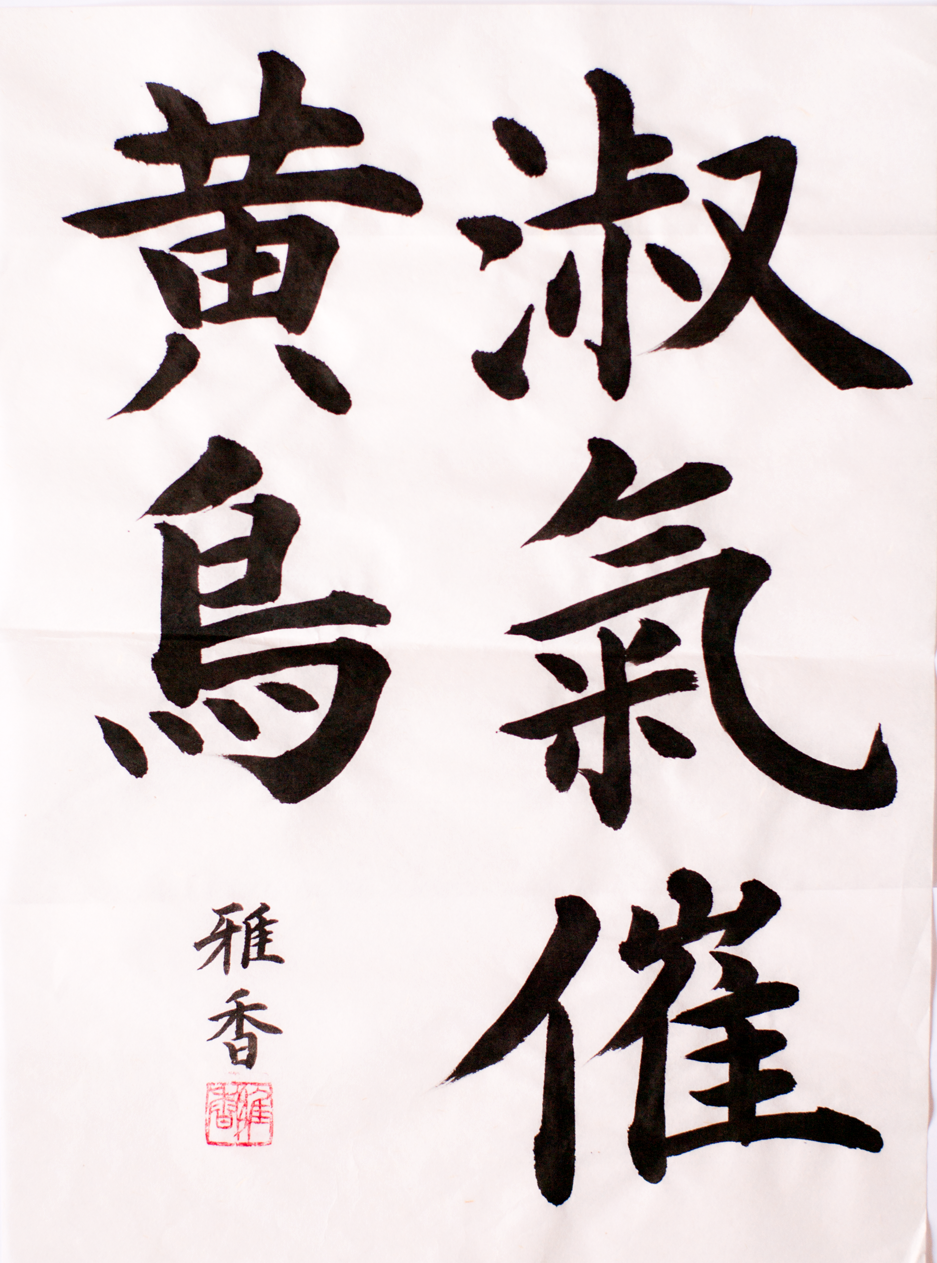 淑氣催
黄鳥
雅香
雅香